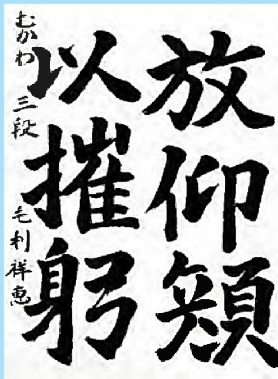 放仰
以摧躬
むかわ 三段 毛利祥惠